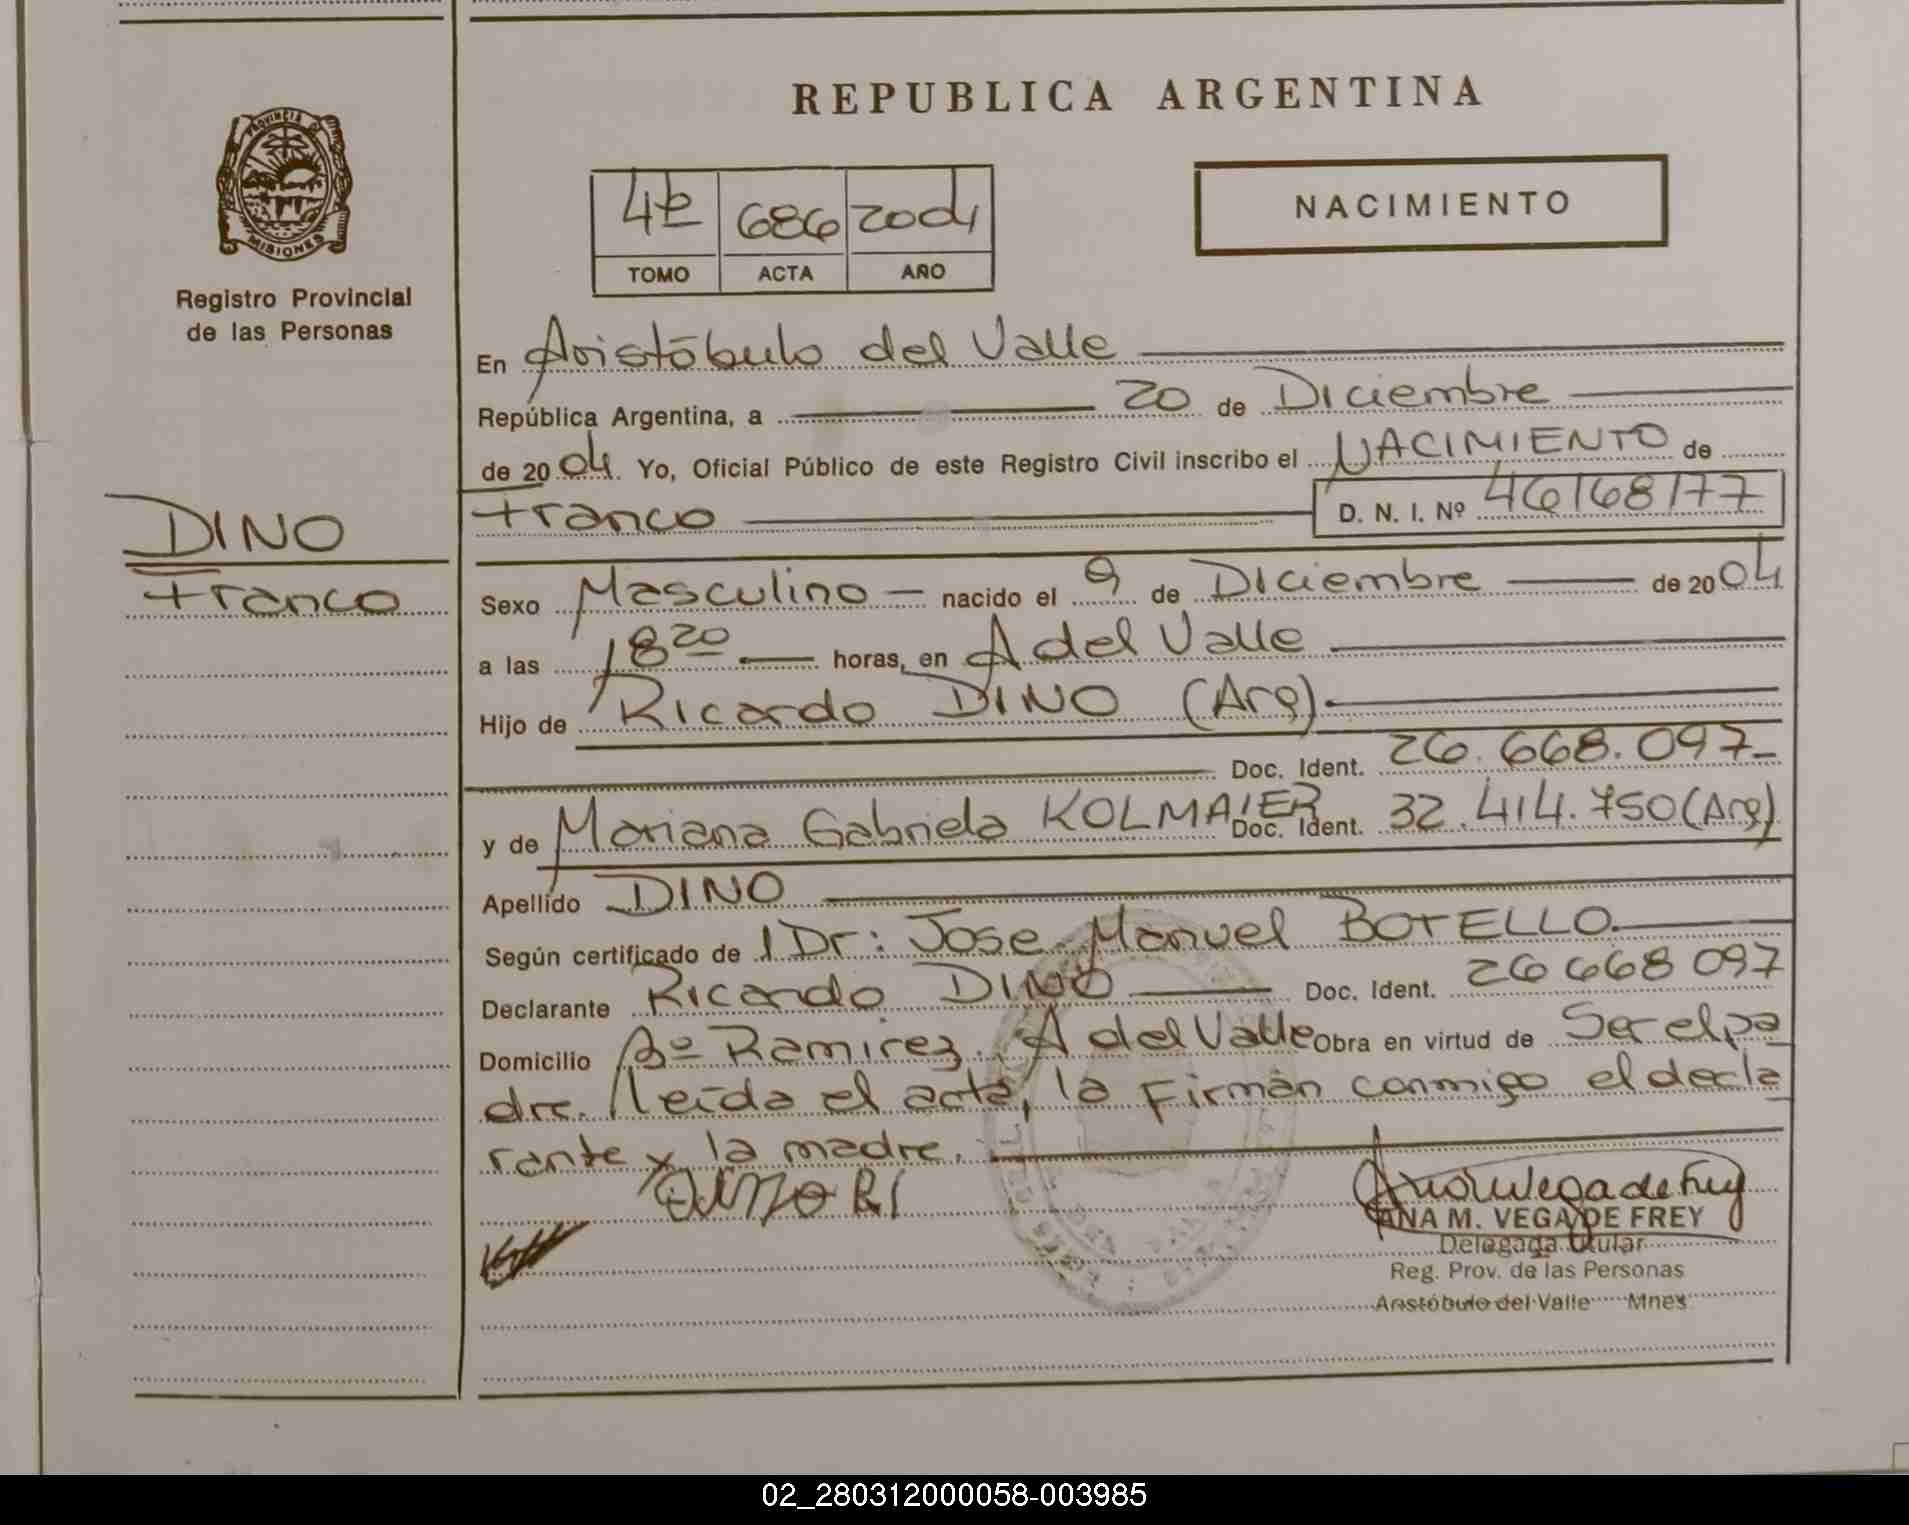 REPUBLICA ARGENTINA
PROVINCIA DE
MISIONES
Registro Provincial
de las Personas
4º 686 2004
TOMO ACTA AÑO
NACIMIENTO
En Aristóbulo del Valle
República Argentina, a 20 de Diciembre
de 2004. Yo, Oficial Público de este Registro Civil inscribo el NACIMIENTO de
Franco D. N. I. Nº 46168177
DINO
Franco
Sexo Masculino nacido el 9 de Diciembre de 2004
a las 18 20 horas, en A del Valle
Hijo de Ricardo DINO (Arg)
Doc. Ident. 26.668.097
y de Mariana Gabriela KOLMAIER Doc. Ident. 32.414.750 (Arg)
Apellido DINO
Según certificado de Dr: Jose Manuel BOTELLO.
Declarante Ricardo DINO Doc. Ident. 26 668 097
Domicilio Bº Ramirez. A del Valle Obra en virtud de Ser el pa
dre. leída el acta, la Firman conmigo el decla
rante y la madre.
ANA M. VEGA DE FREY
Delegada Titular
Reg. Prov. de las Personas
Aristóbulo del Valle Mnes
02_280312000058-003985